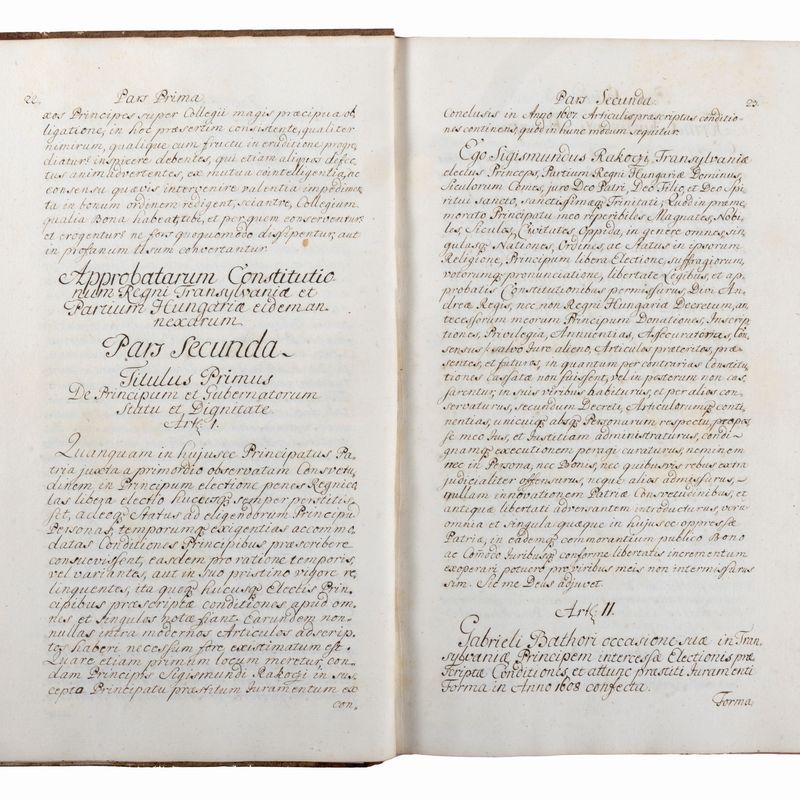 22. Pars Prima
xos Principes super Collegii magis præcipua ob,
ligatione, in hoc præsertim consistente, qualiter
nimirum, qualique cum fructu in eruditione progre,
diatur inspicere debentes, qui etiam aliquos defec,
tus animadvertentes, ex mutua cointelligentia, ac
consensu quævis intervenire valentia impedimen,
ta in bonum ordinem redigent, sciantve, Collegium
qualia Bona habeat tibi, et per quem conserventur,
et erogentur ne fors quoquomodo dissipentur, aut
in profanum Usum convertantur.
Approbatarum Constitutio
num Regni Transylvaniæ et
Partium Hungariæ eidem an,
nexarum
Pars Secunda
Titulus Primus
De Principum et Gubernatorum
Statu et Dignitate
Art. I.
Quanquam in hujusce Principatus Pa,
tria juxta a primordio observatam Consvetu,
dinem, in Principum electione penes Regnico,
las libera electio hucusq semper perstitis,
set, adeoq Status ad eligendorum Principum
Personas, temporumq exigentias accommo,
datas Conditiones Principibus præscribere
consuevissent, easdem pro ratione temporis,
vel variantes, aut in suo pristino vigore re,
linquentes, ita quoq hucusq Electis Prin,
cipibus præscriptæ conditiones apud om,
nes et singulos notæ fiant. Earundem non,
nullas intra modernos Articulos adscrip,
tos haberi necessum fore existimatum est.
Quare etiam primum locum meretur, con,
dam Principis Sigismundi Rakoczi in sus,
cepto Principatu præstitum Juramentum ex
con,
Pars Secunda 23.
Conclusis in Anno 1607 Articulis præscriptas conditio,
nes continens, quod in hunc modum sequitur.
Ego Sigismundus Rakoczi, Transylvaniæ
electus Princeps, Partium Regni Hungariæ Dominus,
Siculorum Comes, juro Deo Patri, Deo Filio, et Deo Spi,
ritui sancto, sanctissimæq Trinitati; Quod in præme,
morato Principatu meo reperibiles Magnates, Nobi,
les, Siculos, Civitates, Oppida, in genere omnes, sin,
gulasq Nationes, Ordines, ac Status in ipsorum
Religione, Principum libera Electione, suffragiorum,
votorumq pronunciatione, libertate Legibus, et ap,
probatis Constitutionibus permissurus, Divi An,
dreæ Regis, nec non Regni Hungariæ Decretum, an,
tecessorum meorum Principum Donationes, Inscrip
tiones, Privilegia, Annuentias, Assecuratorias, Con,
sensus salvo Jure alieno, Articulos præteritos, præ,
sentes, et futuros, in quantum per contrarias Constitu,
tiones Cassatæ non fuissent, vel in posterum non cas,
sarentur, in suis viribus habiturus, et per alios con,
servaturus, secundum Decreti, Articulorumq conti,
nentias, unicuiq absq Personarum respectu, propos
se meo Jus, et Justitiam administraturus, condi,
gnamq executionem peragi curaturus, neminem
nec in Persona, nec Bonis, nec quibusvis rebus extra
judicialiter offensurus, neque alios admissurus,
nullam innovationem Patriæ Consvetudinibus, et
antiquæ libertati adversantem introducturus, verum
omnia et singula quæque in hujusce oppressæ
Patriæ, in eademq commorantium publico Bono
ac Comodo Juribusq conforme libertatis incrementum
exoperari potuero pro viribus meis non intermissurus
sim. Sic me Deus adjuvet.
Art. II.
Gabrieli Bathori occasione suæ in Tran,
sylvaniæ Principem intercessæ Electionis præ
scriptæ Conditiones, et attunc præstiti Juramenti
Forma in Anno 1608 confecta.
Forma